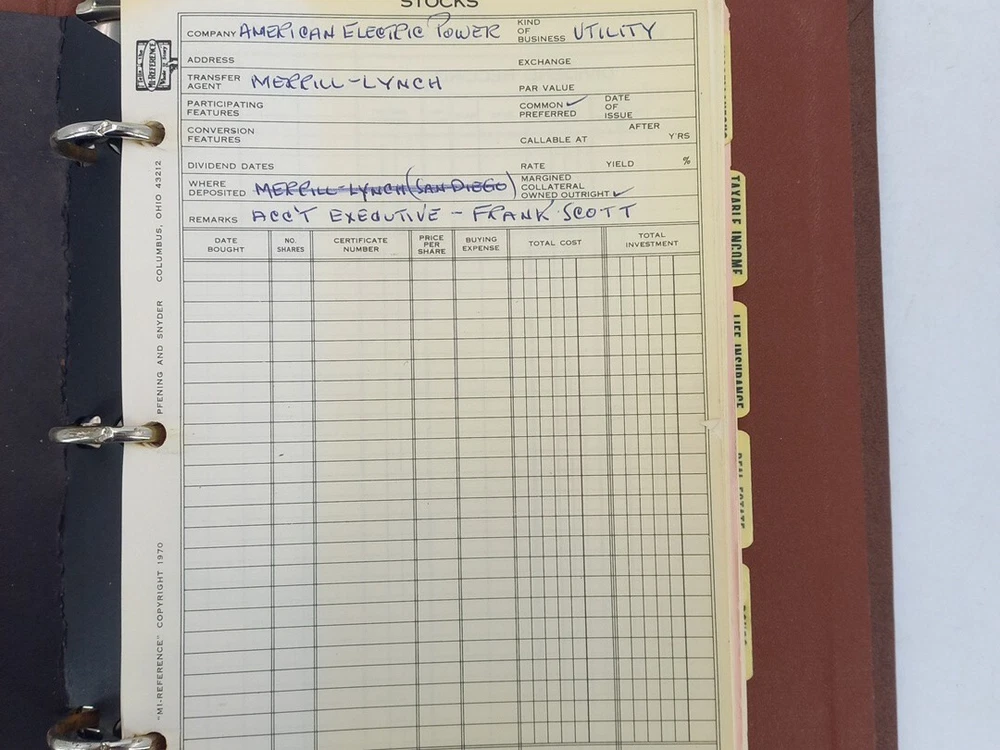 STOCKS
COMPANY AMERICAN ELECTRIC POWER KIND OF BUSINESS UTILITY
ADDRESS EXCHANGE
TRANSFER AGENT MERRILL-LYNCH PAR VALUE
PARTICIPATING FEATURES COMMON ✓ PREFERRED DATE OF ISSUE
CONVERSION FEATURES CALLABLE AT AFTER Y'RS
DIVIDEND DATES RATE YIELD %
WHERE DEPOSITED MERRILL-LYNCH (SAN DIEGO) MARGINED COLLATERAL OWNED OUTRIGHT ✓
REMARKS ACC'T EXECUTIVE - FRANK SCOTT
DATE BOUGHT NO. SHARES CERTIFICATE NUMBER PRICE PER SHARE BUYING EXPENSE TOTAL COST TOTAL INVESTMENT
MI-REFERENCE
"MI-REFERENCE" COPYRIGHT 1970 PFENING AND SNYDER COLUMBUS, OHIO 43212
TAXABLE INCOME
LIFE INSURANCE
REAL ESTATE